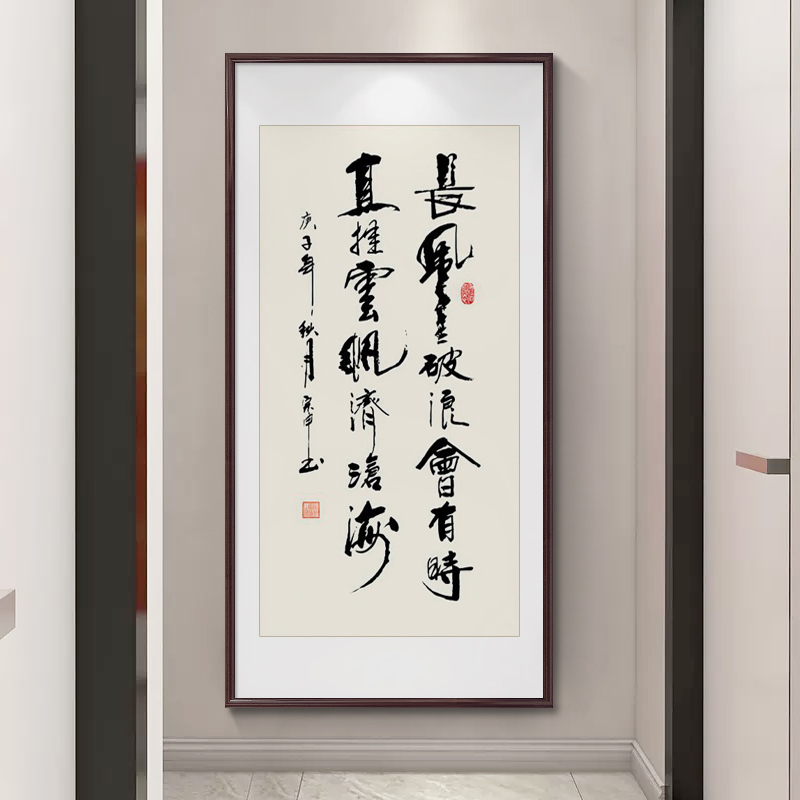 長風破浪會有時
直挂雲帆濟滄海
庚子年秋月书